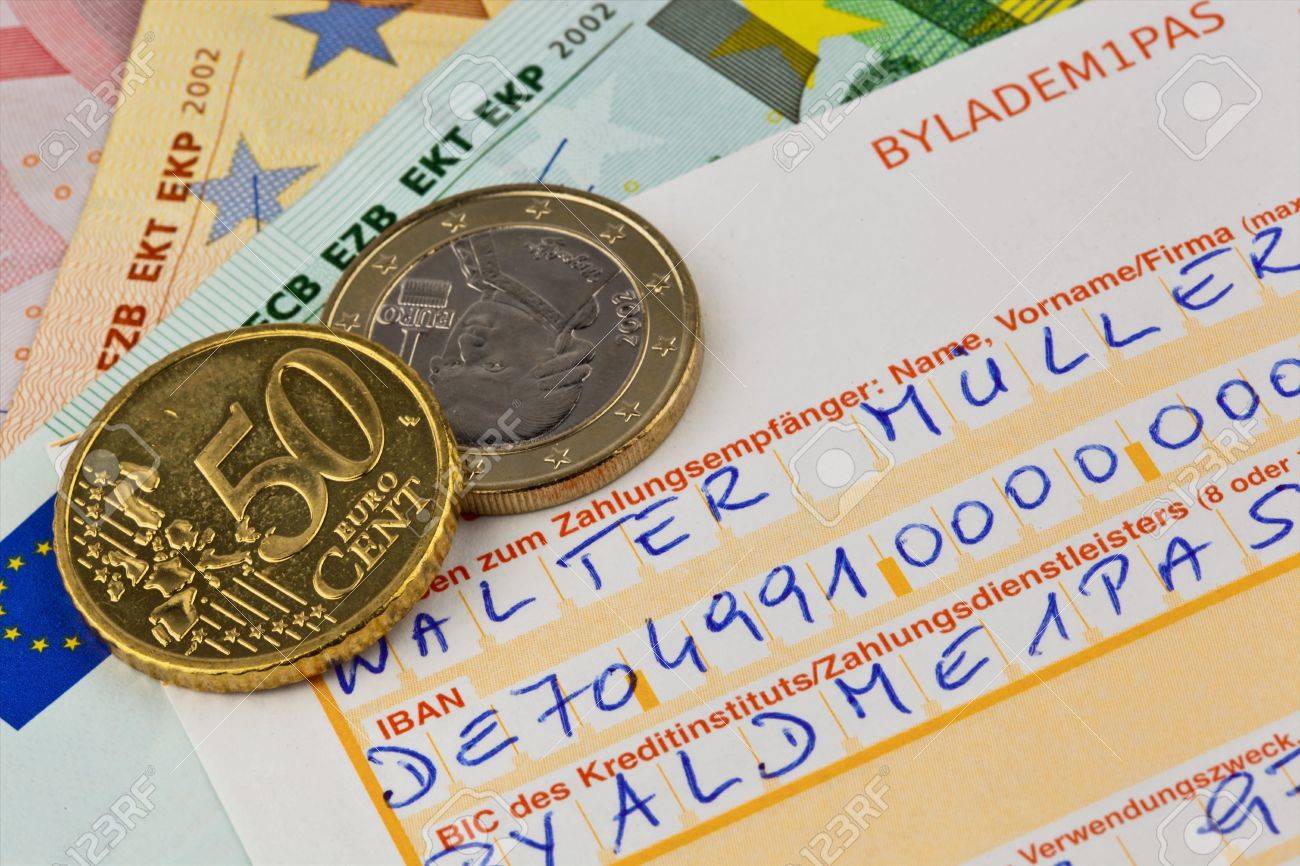 EZB EKT EKP 2002
ECB EZB EKT EKP 2002
BYLADEM1PAS
EURO
2002
50
EURO
CENT
zum Zahlungsempfänger: Name, Vorname/Firma (max
WALTER MÜLLER
IBAN
DE70499100000000
BIC des Kreditinstituts/Zahlungsdienstleisters (8 oder
BYALDME1PAS
Verwendungszweck,
123RF